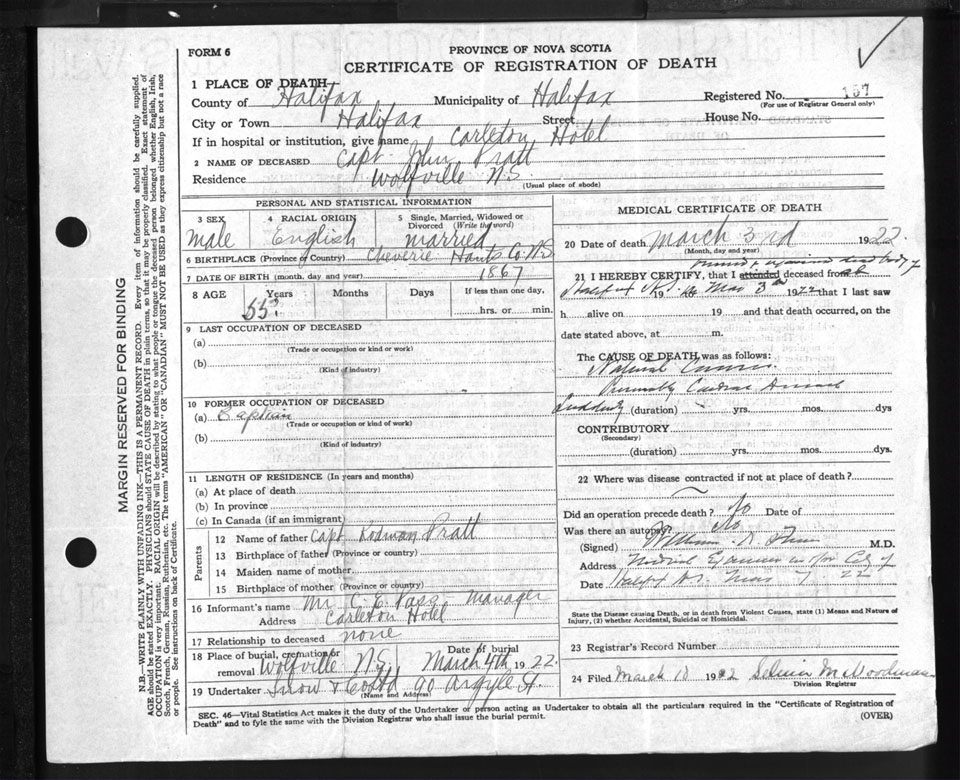 FORM 6
PROVINCE OF NOVA SCOTIA
CERTIFICATE OF REGISTRATION OF DEATH
1 PLACE OF DEATH
County of Halifax Municipality of Halifax Registered No. 167
(For use of Registrar General only)
City or Town Halifax Street House No.
If in hospital or institution, give name Carleton Hotel
2 NAME OF DECEASED Capt. John Pratt
Residence Wolfville N.S.
(Usual place of abode)
PERSONAL AND STATISTICAL INFORMATION
3 SEX 4 RACIAL ORIGIN 5 Single, Married, Widowed or Divorced (Write the word)
Male English married
6 BIRTHPLACE (Province or Country) Cheverie Hants Co. N.S.
7 DATE OF BIRTH (month, day, and year) 1867
8 AGE Years Months Days If less than one day,
55? hrs. or min.
9 LAST OCCUPATION OF DECEASED
(a)
(Trade or occupation or kind or work)
(b)
(Kind of industry)
10 FORMER OCCUPATION OF DECEASED
(a) Captain
(Trade or occupation or kind of work)
(b)
(Kind of industry)
11 LENGTH OF RESIDENCE (In years and months)
(a) At place of death
(b) In province
(c) In Canada (if an immigrant)
Parents
12 Name of father Capt. Rodman Pratt
13 Birthplace of father (Province or country)
14 Maiden name of mother
15 Birthplace of mother (Province or country)
16 Informant's name Mr. C. E. Manager
Address Carleton Hotel
17 Relationship to deceased none
18 Place of burial, cremation or removal Wolfville N.S. Date of burial March 4th 1922
19 Undertaker Snow & Co Ltd 90 Argyle St.
(Name and Address)
MEDICAL CERTIFICATE OF DEATH
20 Date of death March 3rd 1922
(Month, day and year)
21 I HEREBY CERTIFY, that I attended deceased from
viewed & dead body of
at Halifax N.S. 19 to Mar 3rd 1922 that I last saw
h alive on 19 and that death occurred, on the
date stated above, at m.
The CAUSE OF DEATH was as follows:
Natural Causes
Cardiac Disease
Suddenly (duration) yrs. mos. dys
CONTRIBUTORY
(Secondary)
(duration) yrs. mos. dys.
22 Where was disease contracted if not at place of death?
Did an operation precede death? No Date of
Was there an autopsy? No
(Signed) William D. M.D.
Address Medical Examiner City of
Date Halifax N.S. Mar 7 22
State the Disease causing Death, or in death from Violent Causes, state (1) Means and Nature of
Injury, (2) whether Accidental, Suicidal or Homicidal.
23 Registrar's Record Number
24 Filed March 10 1922 Selwin McWoodman
Division Registrar
SEC. 46—Vital Statistics Act makes it the duty of the Undertaker or person acting as Undertaker to obtain all the particulars required in the "Certificate of Registration of
Death" and to fyle the same with the Division Registrar who shall issue the burial permit.
(OVER)
MARGIN RESERVED FOR BINDING
N.B.—WRITE PLAINLY WITH UNFADING INK—THIS IS A PERMANENT RECORD. Every item of information should be carefully supplied.
AGE should be stated EXACTLY. PHYSICIANS should STATE CAUSE OF DEATH in plain terms, so that it may be properly classified. Exact statement of
OCCUPATION is very important. RACIAL ORIGIN will be described by stating to what people or tongue the deceased person belonged whether English, Irish,
Scotch, French, German, Russian, Ruthenian, etc. The terms "AMERICAN" OR "CANADIAN" MUST NOT BE USED as they express citizenship but not a race
or people. See instructions on back of Certificate.